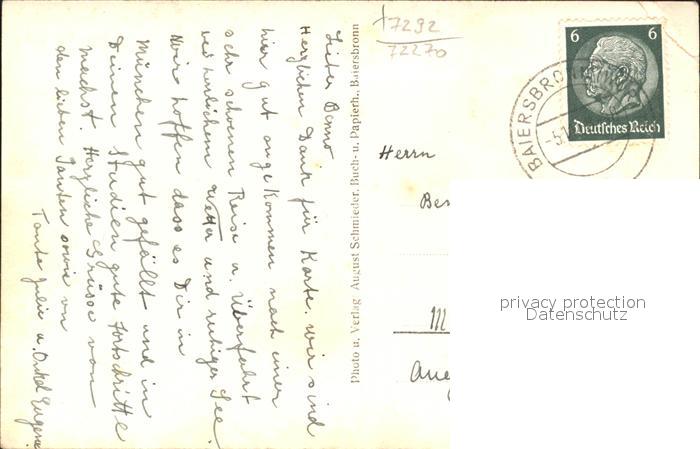 Lieber Benno
Herzlichen Dank für Karte. wir sind
hier gut angekommen nach einer
sehr schoenen Reise u. Überfahrt
herrlichem Wetter und ruhiger See.
Wir hoffen dass es Dir in
München gut gefällt und in
Deinen Studien gute Fortschritte
machst. Herzliche Grüsse von
den lieben Tanten sowie von
Tante Julie u. Onkel Eugene
Photo u. Verlag August Schmieder, Buch- u. Papierh., Baiersbronn
7292
72270
6 6
Deutsches Reich
BAIERSBRO
-5.1
Herrn
Ben
M
Aug
privacy protection
Datenschutz